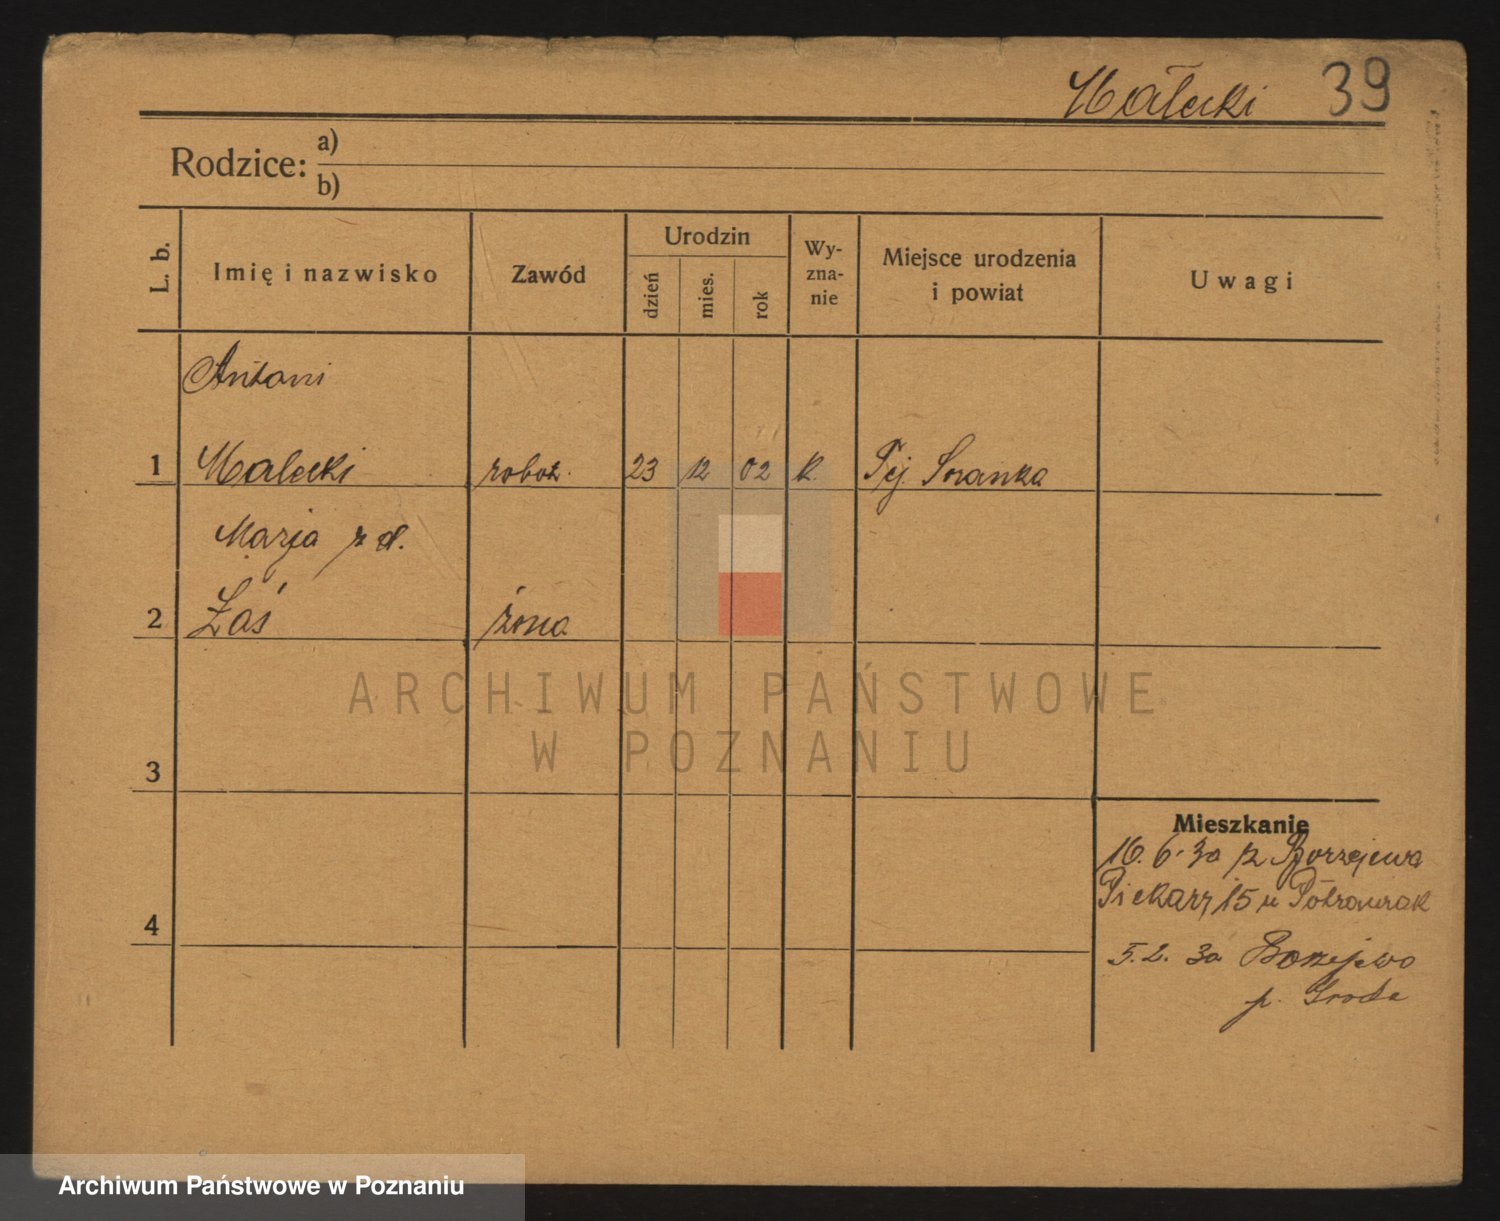 Małecki 39
Rodzice: a)
b)
L. b.
Imię i nazwisko
Zawód
Urodzin
dzień
mies.
rok
Wy-
zna-
nie
Miejsce urodzenia
i powiat
Uwagi
Antoni
1 Małecki robot. 23 12 02 k.
Marja z d.
2 Żaś żona
3
4
Mieszkanie
16. 6. 30 z
Piekary 15 u
5. 2. 30
p. Środa
ARCHIWUM PAŃSTWOWE
W POZNANIU
Archiwum Państwowe w Poznaniu